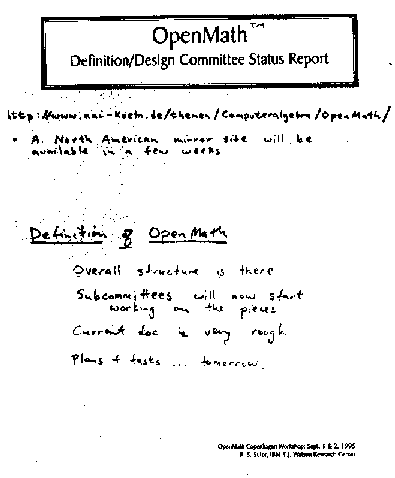 OpenMath™
Definition/Design Committee Status Report
http://www.uni-koeln.de/themen/Computeralgebra/OpenMath/
• A North American mirror site will be
available in a few weeks
Definition of OpenMath
Overall structure is there
Subcommittees will now start
working on the pieces
Current doc is very rough
Plans + tasks ... tomorrow.
OpenMath Copenhagen Workshop: Sept. 1 & 2, 1995
R. S. Sutor, IBM T.J. Watson Research Center